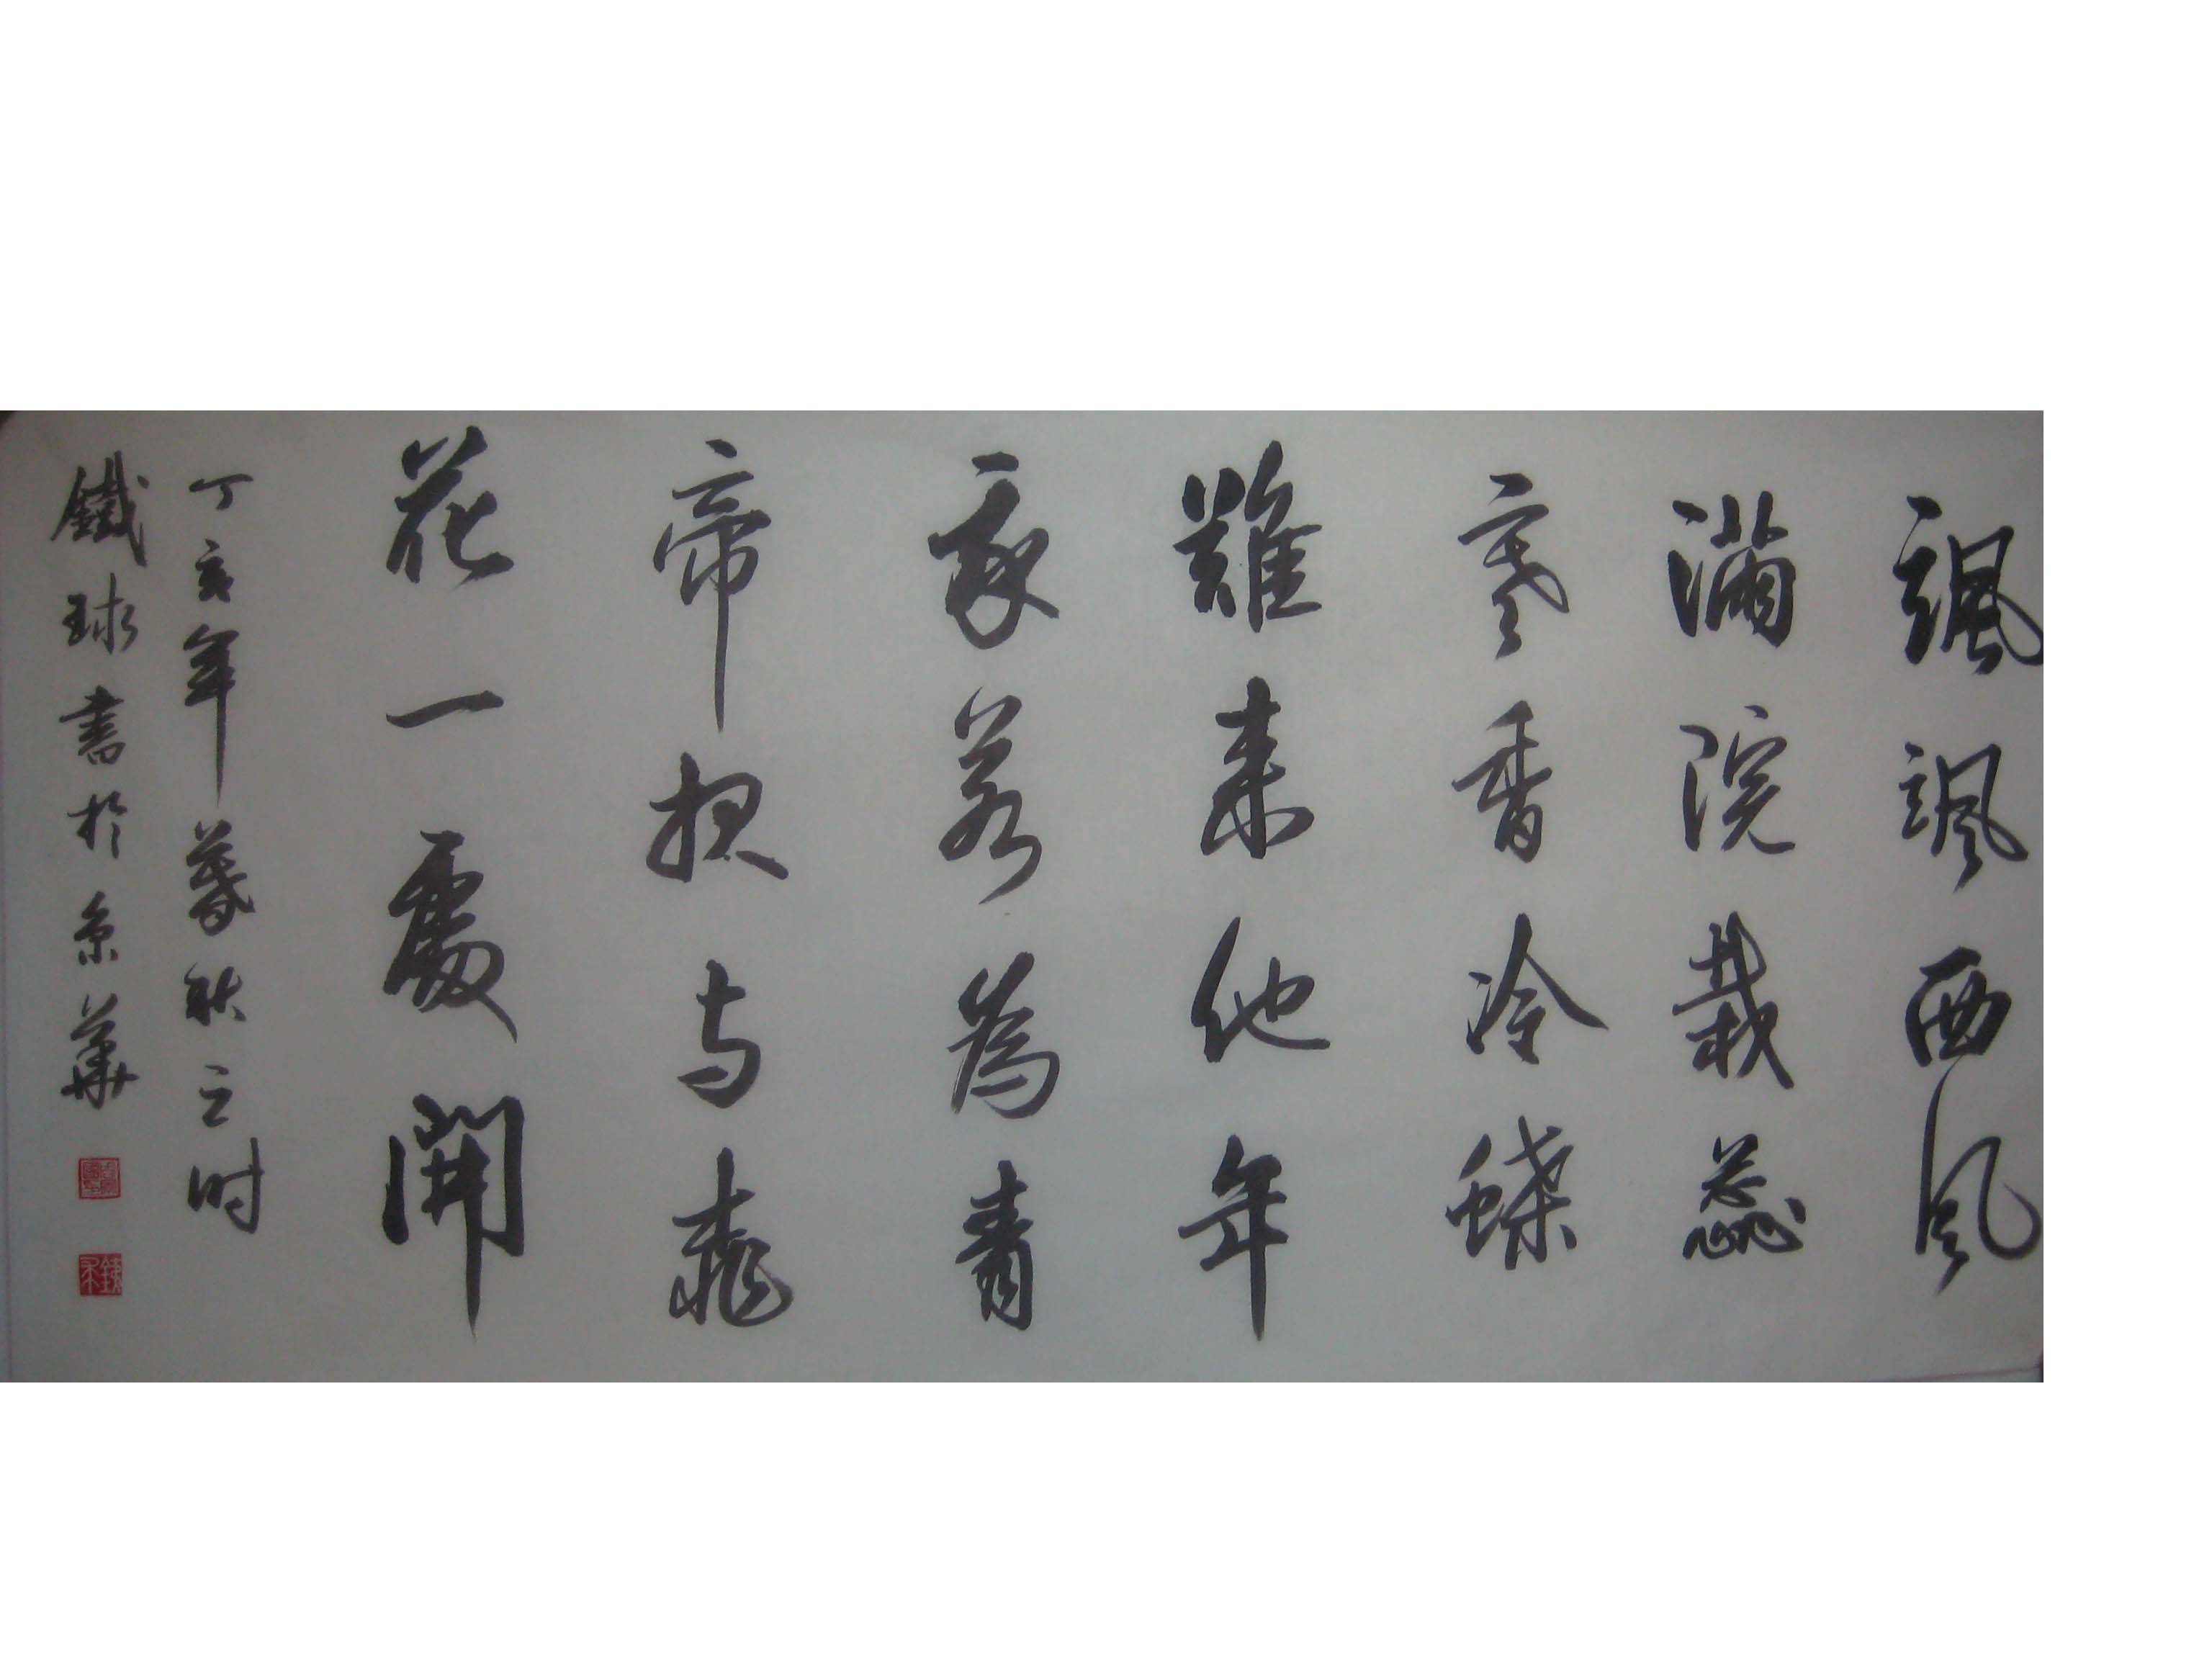 颯颯西风
滿院栽蕊
寒香冷蝶
難来他年
我若為青
帝报与桃
花一處開
丁亥年暮秋之时
鐵球書於京華